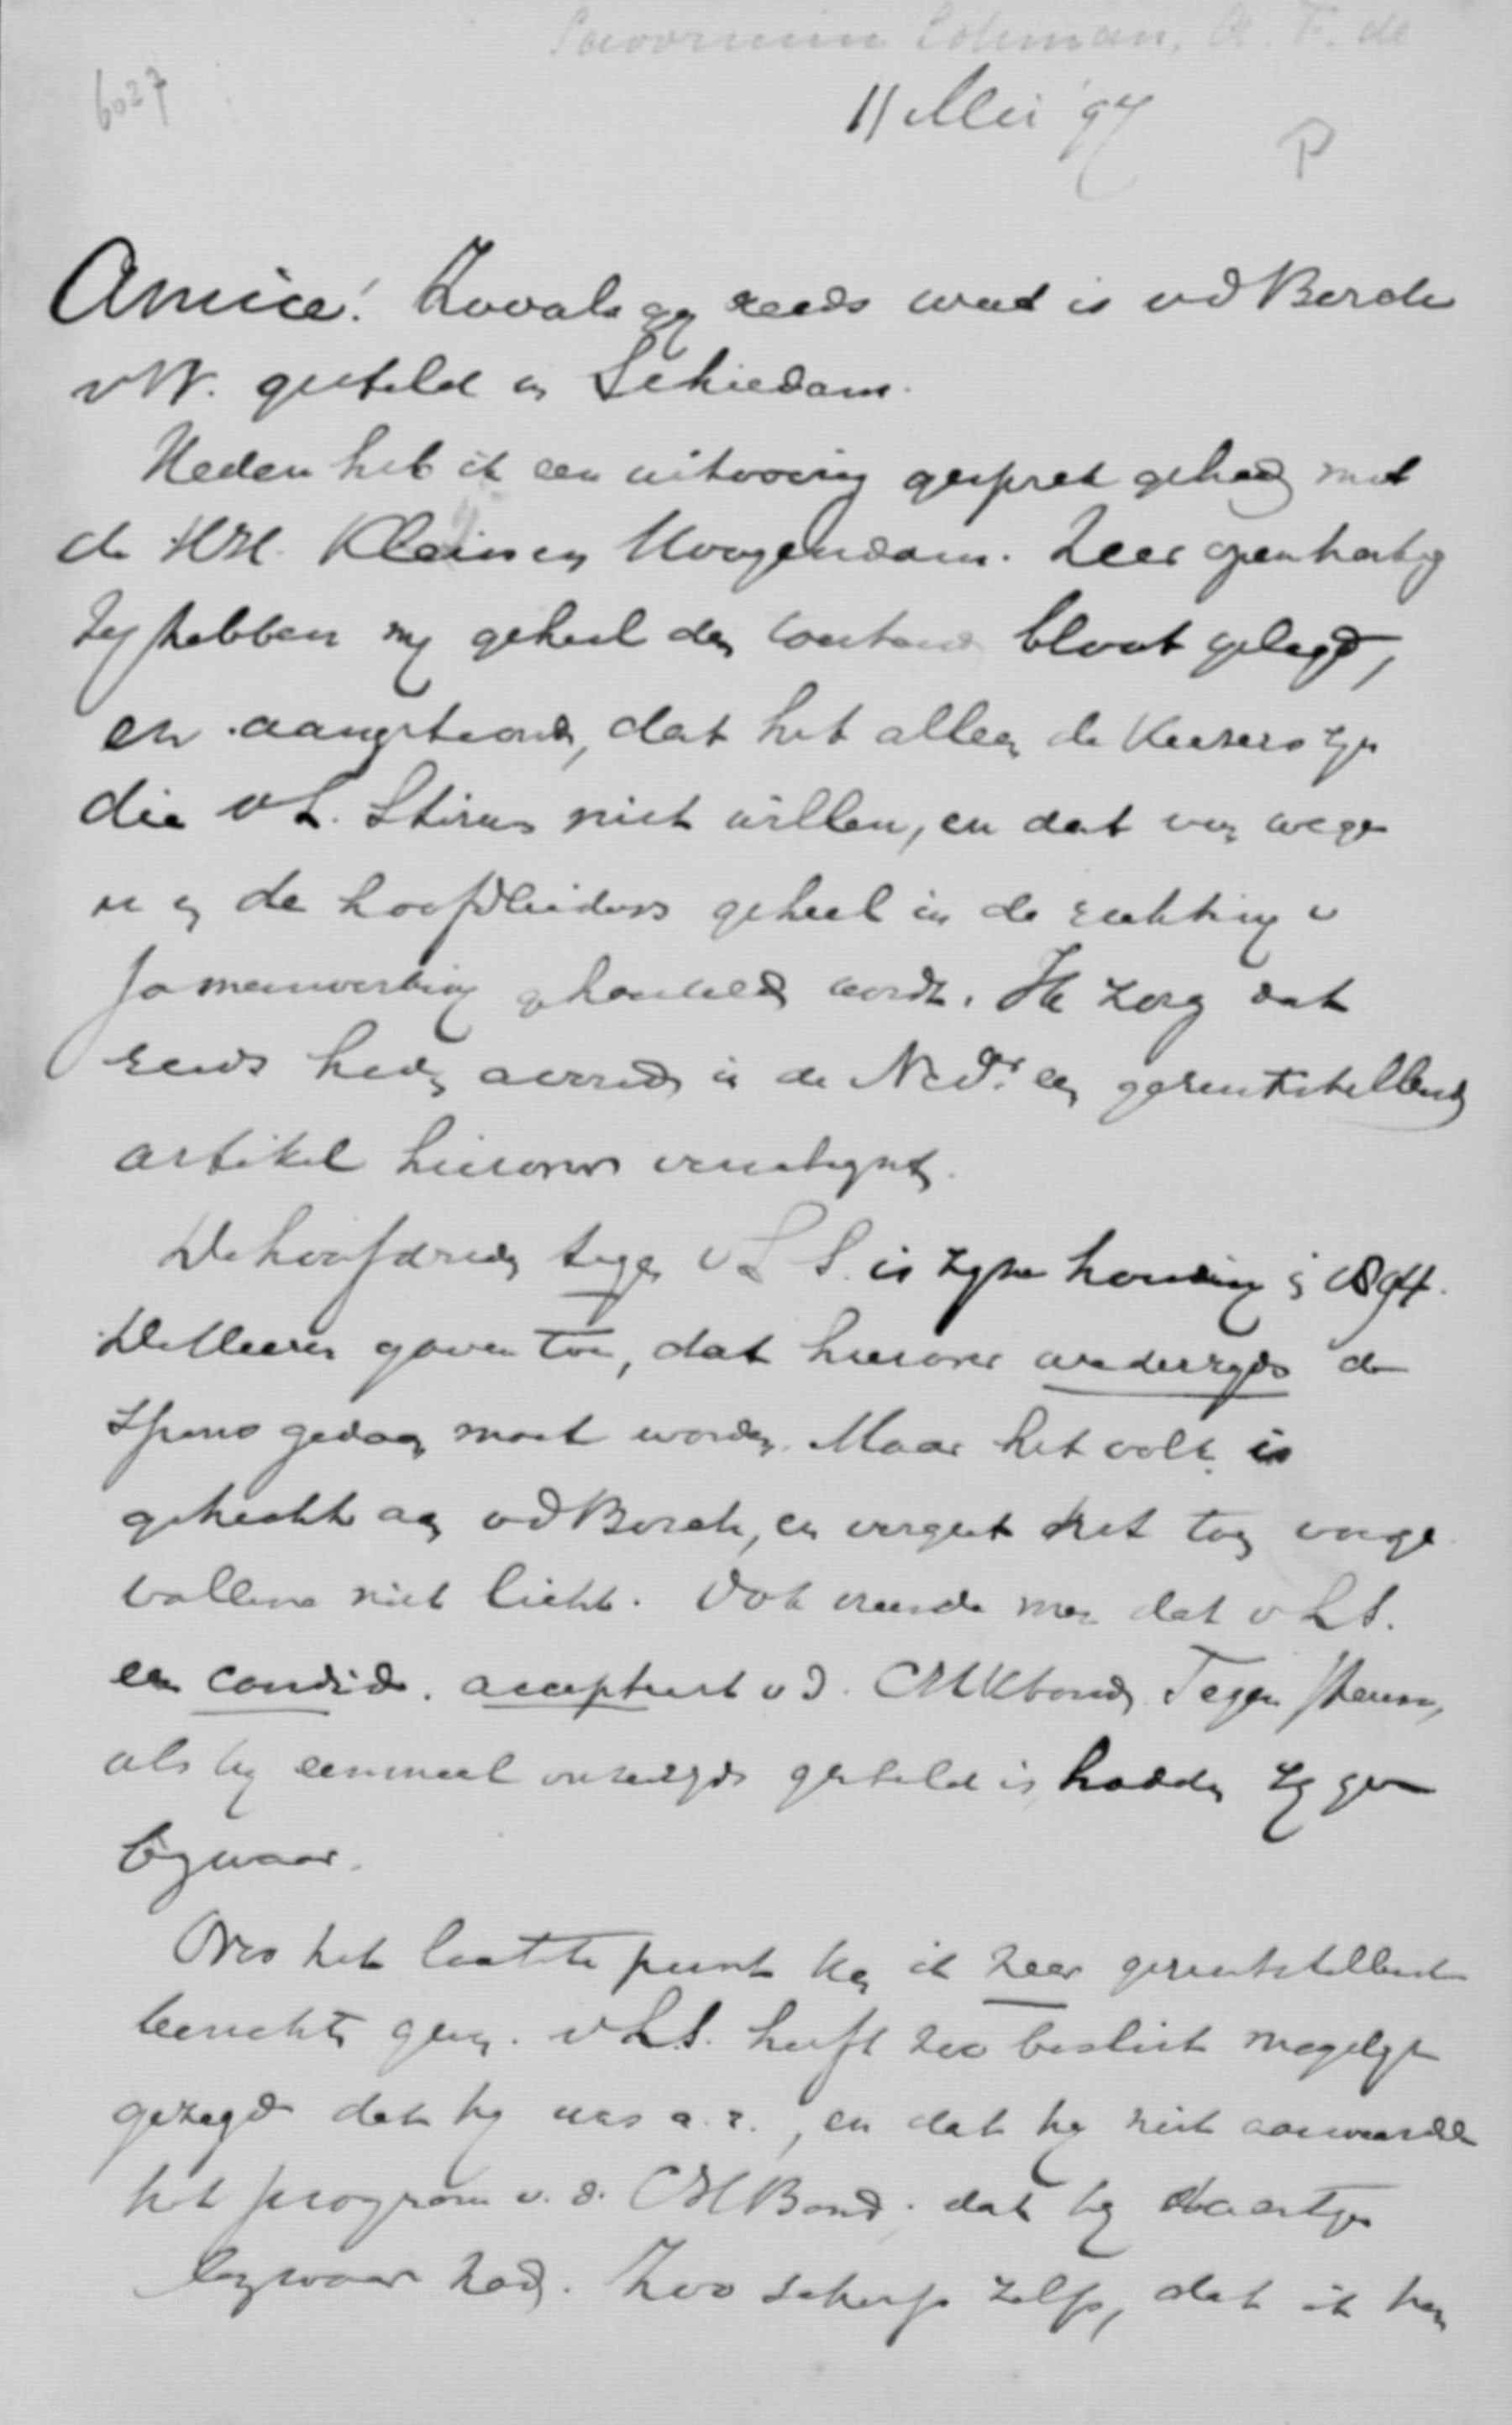 Savornin Lohman, A. F. de
6027
11 Mei '97
P
Amice! Zooals gy reeds weet is vd Berch
v W. gesteld in Schiedam.
Heden heb ik een uitvoerig gesprek gehad met
de HH. Klein en Hoogendam. Zeer openhartig
Zy hebben my geheel den toestand bloot gelegd,
en aangetoond, dat het alleen de Kiezers zyn
die v L. Stirum niet willen, en dat van wege
u en de hoofdleiders geheel in de richting v
samenwerking gehandeld wordt. Ik zorg dat
reeds heden avond in de Nedr. een geruststellend
artikel hierover verschynt.
De hoofdreden tegen v L S. is zyne houding in 1894.
De Heeren gaven toe, dat hierover wederzyds de
spons gedaan moet worden. Maar het volk is
gehecht aan vd Berch, en vergeet het toen voorge
vallene niet licht. Ook vreesde men dat v L S.
een candid. accepteert v d. CHKbond. Tegen steun,
als hy eenmaal onzerzyds gesteld is, hadden zy geen
bezwaar.
Over het laatste punt kan ik zeer geruststellende
berichten geven. v L S. heeft zoo beslist mogelyk
gezegd dat hy was a.r., en dat hy niet aanvaardde
het program v. d. CHBond; dat hy daartegen
bezwaar had. Zoo scherp zelfs, dat ik hem